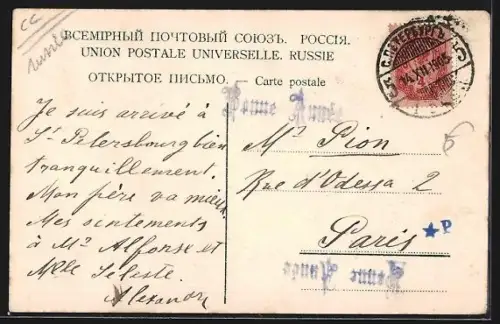 cc
Russie
ВСЕМІРНЫЙ ПОЧТОВЫЙ СОЮЗЪ. РОССІЯ.
UNION POSTALE UNIVERSELLE. RUSSIE
ОТКРЫТОЕ ПИСЬМО. Carte postale
С.ПЕТЕРБУРГЪ
14.XII.1905
Bonne Année
Je suis arrivé à
St Petersbourg bien
tranquillement.
Mon père va mieux.
Mes sintements
à Mr Alfonse et
Melle Seleste.
Alexandre
Mr Pion
Rue d'Odessa 2
Paris
6
★P
Bonne Année